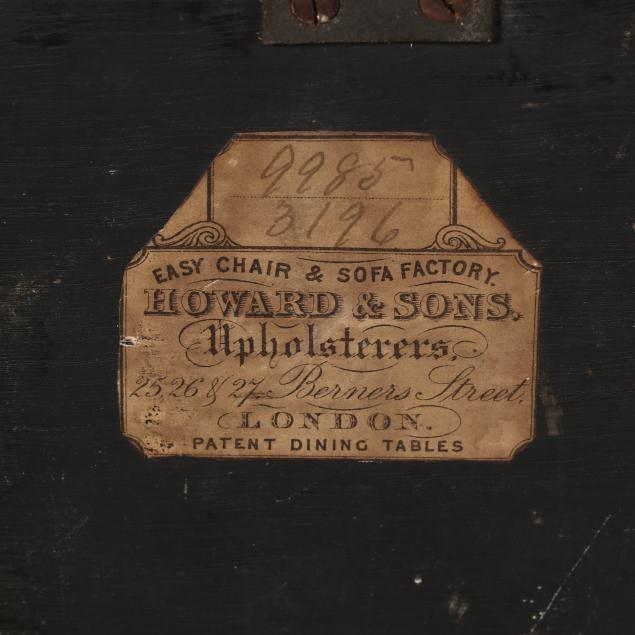 9985
3196
EASY CHAIR & SOFA FACTORY.
HOWARD & SONS.
Upholsterers,
25, 26 & 27, Berners Street,
LONDON.
PATENT DINING TABLES